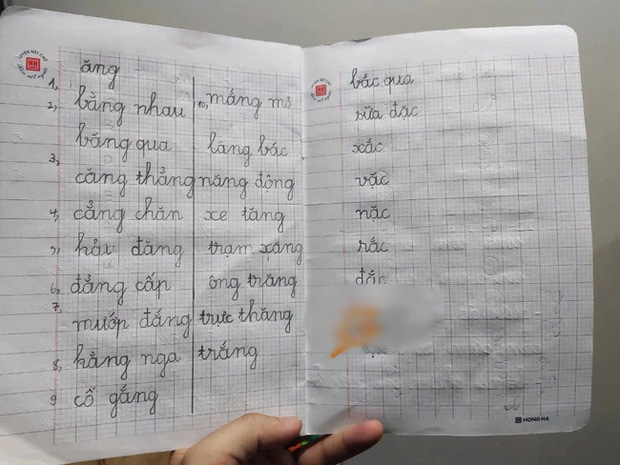 ăng
1,
2, bằng nhau 10, mắng mỏ
băng qua lăng bác
3,
căng thẳng năng động
4, cẳng chăn xe tăng
5, hải đăng trạm xăng
6, đẳng cấp ông trăng
7,
mướp đắng trực thăng
8, hằng nga trắng
9 cố gắng
bắc qua
sữa đặc
xắc
vặc
nặc
rắc
đắc
HONG HA